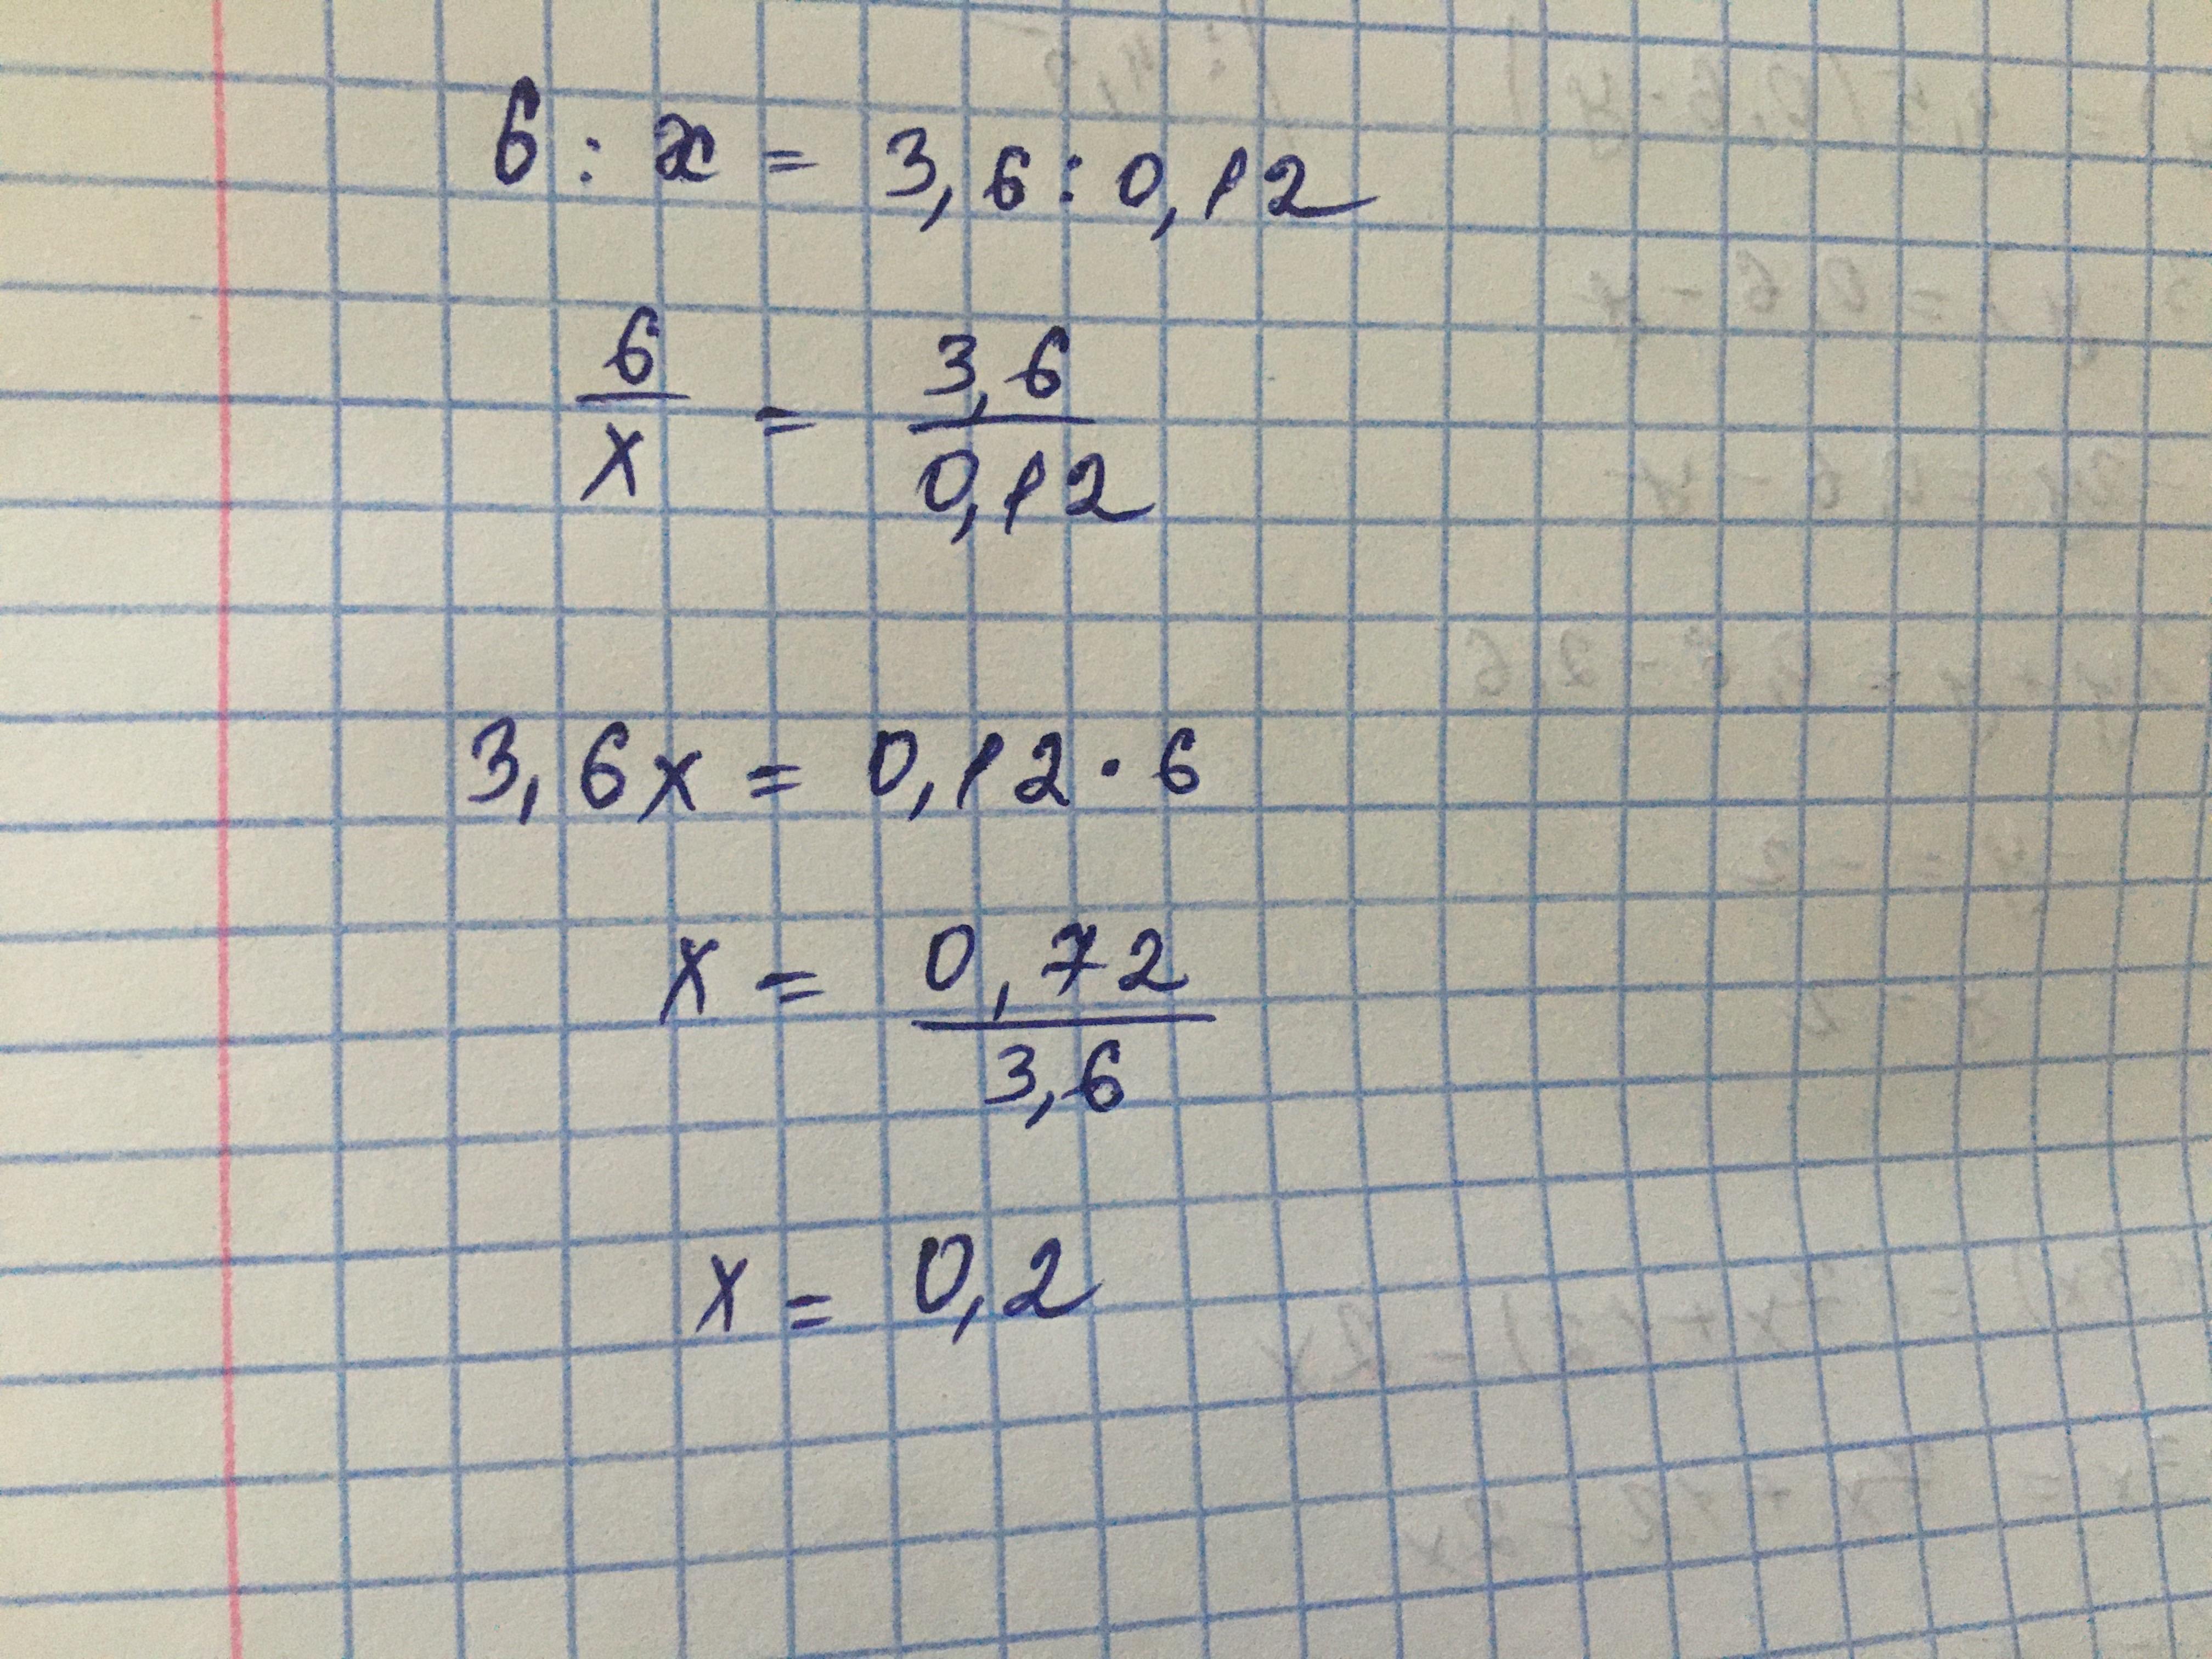 6 : x = 3,6 : 0,12
6/x = 3,6/0,12
3,6x = 0,12 · 6
x = 0,72/3,6
x = 0,2